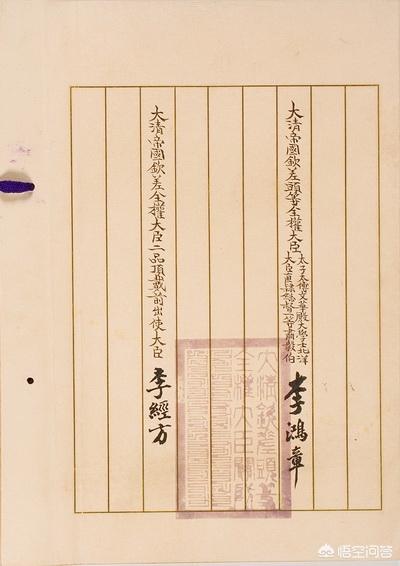 大清帝國欽差頭等全權大臣
太子太傅文華殿大學士北洋
大臣直隸總督一等肅毅伯
李鴻章
大清帝國欽差全權大臣二品頂戴前出使大臣
李經方
大清欽差頭等
全權大臣關防
悟空问答